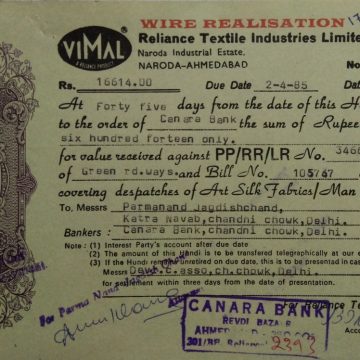 WIRE REALISATION
VIMAL
A RELIANCE PRODUCT
Reliance Textile Industries Limite
Naroda Industrial Estate,
NARODA-AHMEDABAD
No
Rs. 16614.00 Due Date 2-4-85
At Forty five days from the date of this H
to the order of Canara Bank the sum of Rupe
six hundred forteen only.
for value received against PP/RR/LR No. 346
of Green rd.ways. and Bill No. 105747
covering despatches of Art Silk Fabrics/Man
To, Messrs Parmanand Jagdishchand,
Katra Nawab, chandni chowk, Delhi.
Bankers : Canara Bank, chandni chowk, Delhi.
Note : (1) Interest Party's account after due date
(2) The amount of this Hundi is to be transferred telegraphically at
(3) If the Hundi remains unretired on due date, this is to be presented
Messrs. asso, ch.chowk, Delhi.
for settlement within three days from the date of presentation.
For Parma Nand
For Reliance Te
CANARA BANK
REVDI BAZAR
2393
Acco